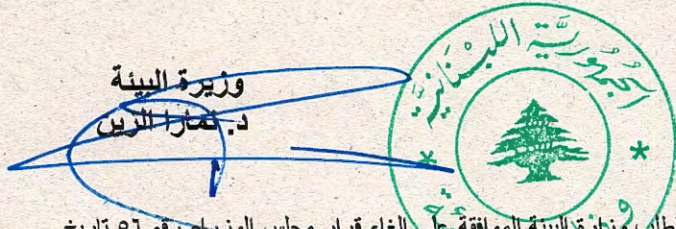 وزيرة البيئة
د. تمارا الزين
الجمهورية اللبنانية
طلب وزارة البيئة الموافقة على الغاء قرار مجلس الوزراء رقم ٥٦ تاريخ